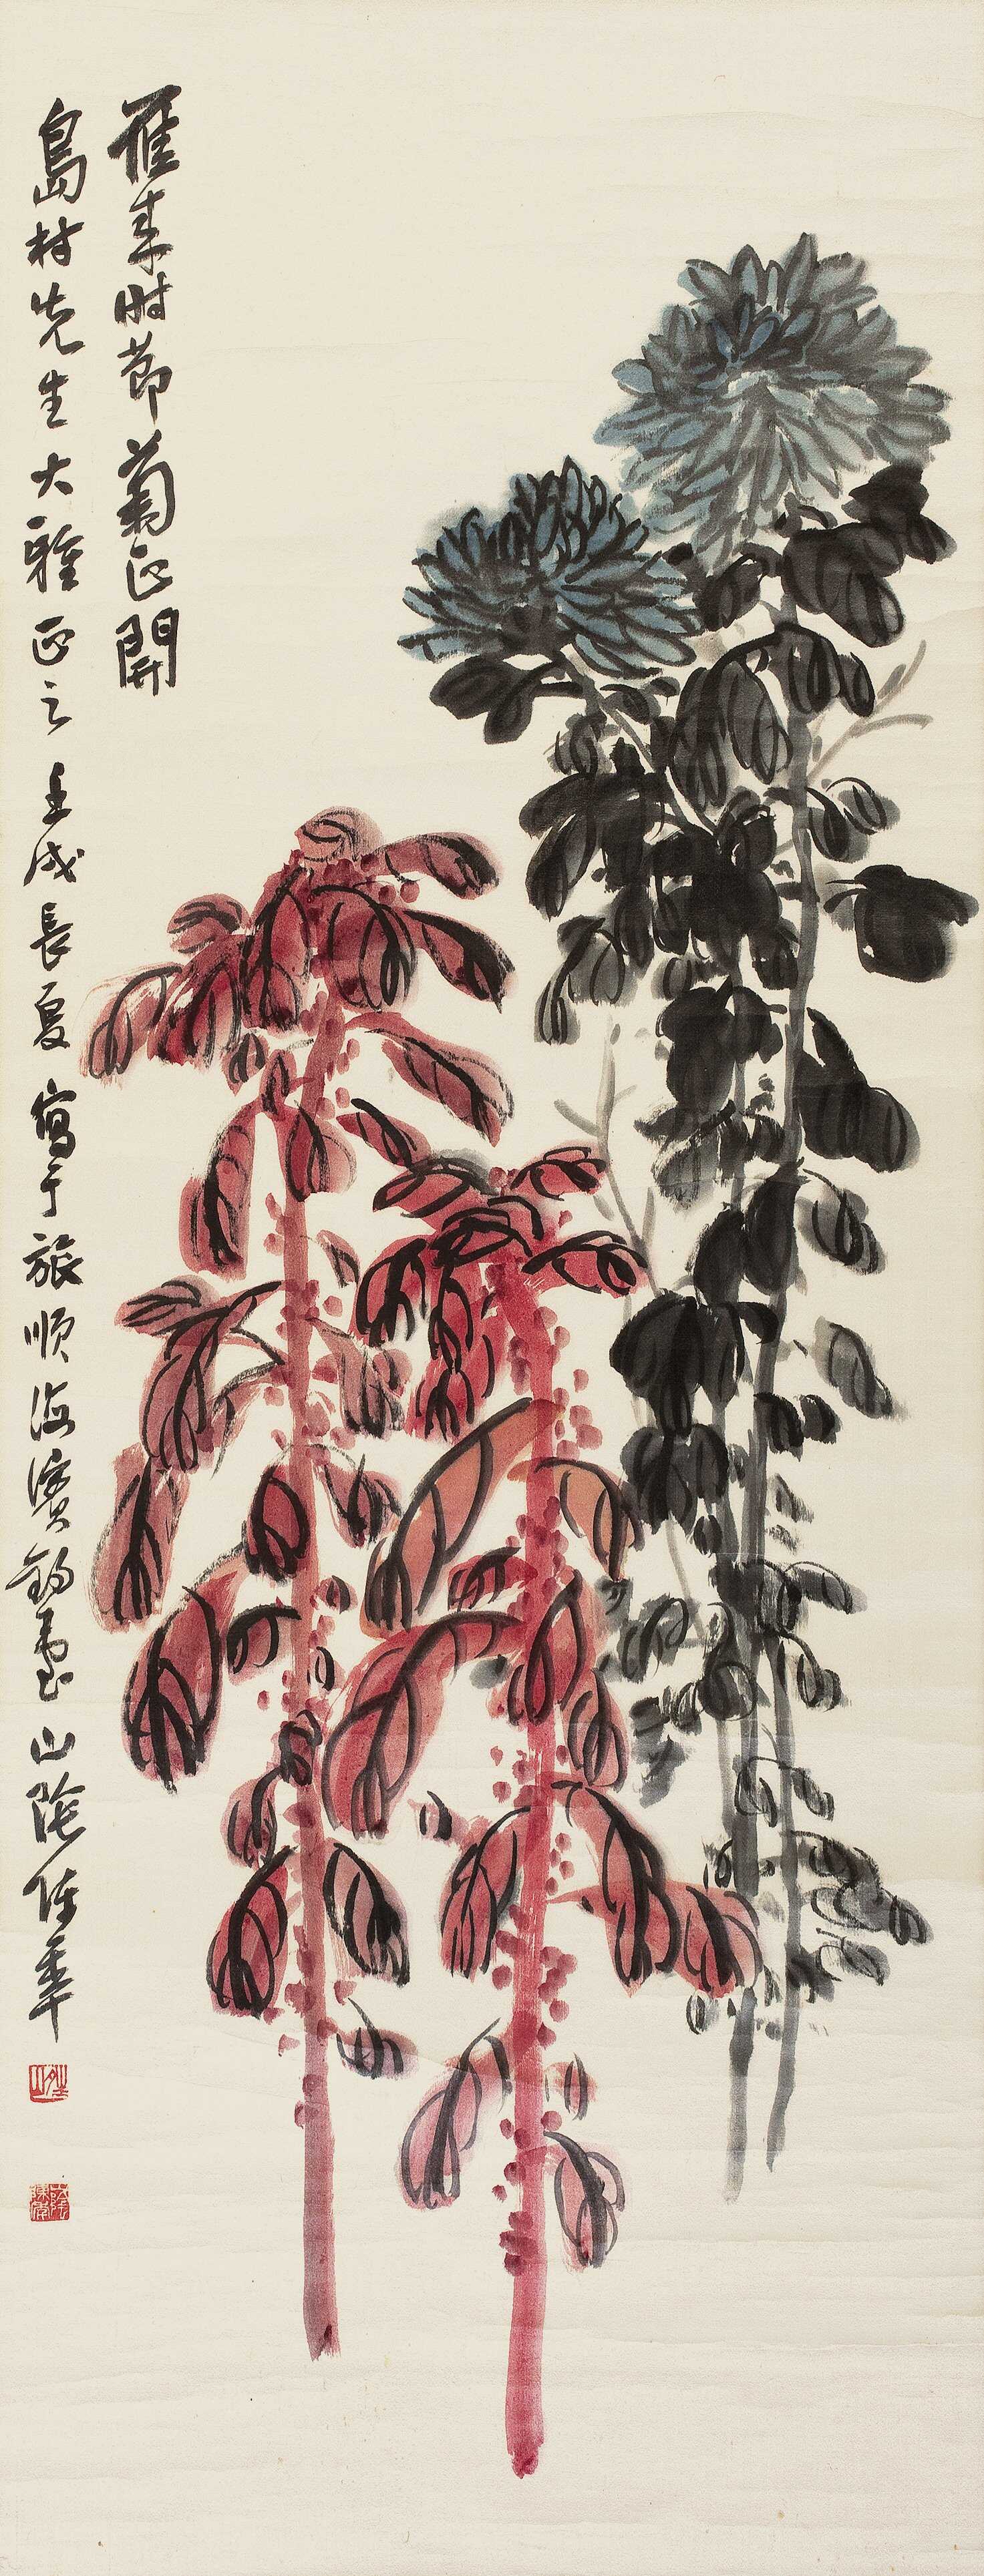 雁来时節菊正開
島村先生大雅正之壬戌長夏寫于旅順海濱釣臺山陰陳年